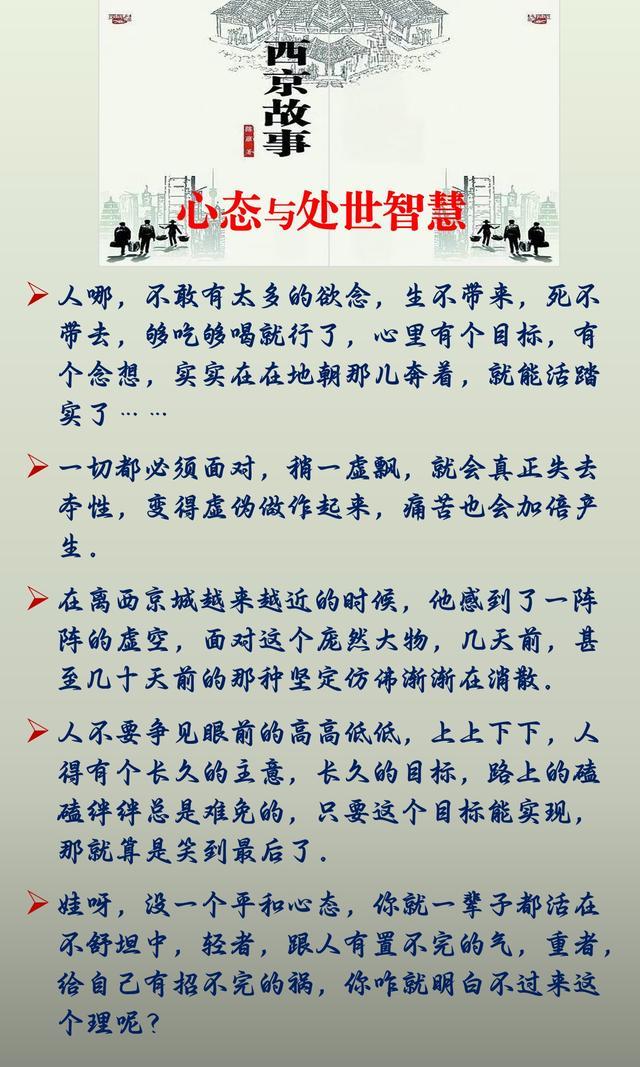 西京故事
陈彦 著
心态与处世智慧
人哪，不敢有太多的欲念，生不带来，死不
带去，够吃够喝就行了，心里有个目标，有
个念想，实实在在地朝那儿奔着，就能活踏
实了……
一切都必须面对，稍一虚飘，就会真正失去
本性，变得虚伪做作起来，痛苦也会加倍产
生。
在离西京城越来越近的时候，他感到了一阵
阵的虚空，面对这个庞然大物，几天前，甚
至几十天前的那种坚定仿佛渐渐在消散。
人不要争见眼前的高高低低，上上下下，人
得有个长久的主意，长久的目标，路上的磕
磕绊绊总是难免的，只要这个目标能实现，
那就算是笑到最后了。
娃呀，没一个平和心态，你就一辈子都活在
不舒坦中，轻者，跟人有置不完的气，重者，
给自己有招不完的祸，你咋就明白不过来这
个理呢？